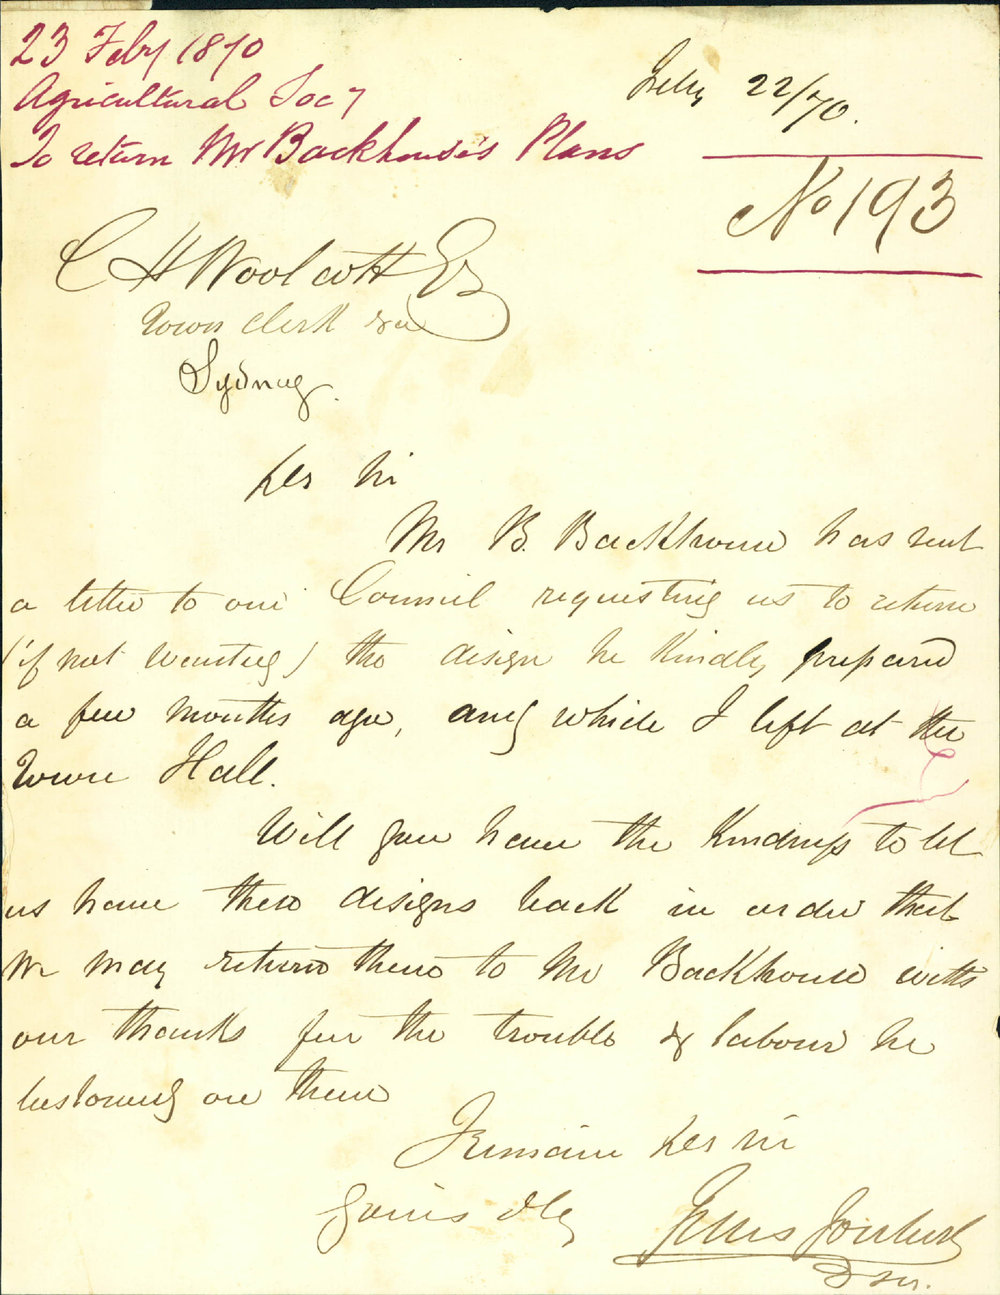 23 Feby 1870
Agricultural Socy
To return Mr Backhouse's Plans
Feby 22/70.
No 193
C H Woolcott Esq
Town Clerk &ca
Sydney.
Dr Sir
Mr B. Backhouse has sent
a letter to our Council requesting us to return
(if not wanted) the design he kindly prepared
a few months ago, and which I left at the
Town Hall.
Will you have the kindness to let
us have these designs back in order that
we may return them to Mr Backhouse with
our thanks for the trouble & labour he
bestowed on them
I remain Dr Sir
yours obly
Jules Joubert
Sec.